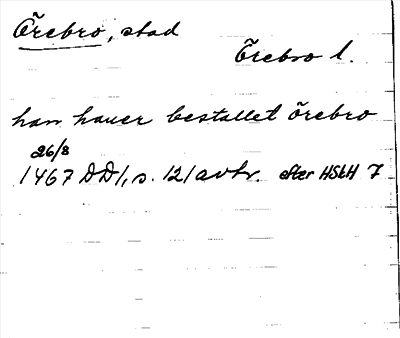 Örebro, stad
Örebro l.
han hauer bestallet örebro
26/8
1467 DD1, s. 121 avtr. efter HSkH 7